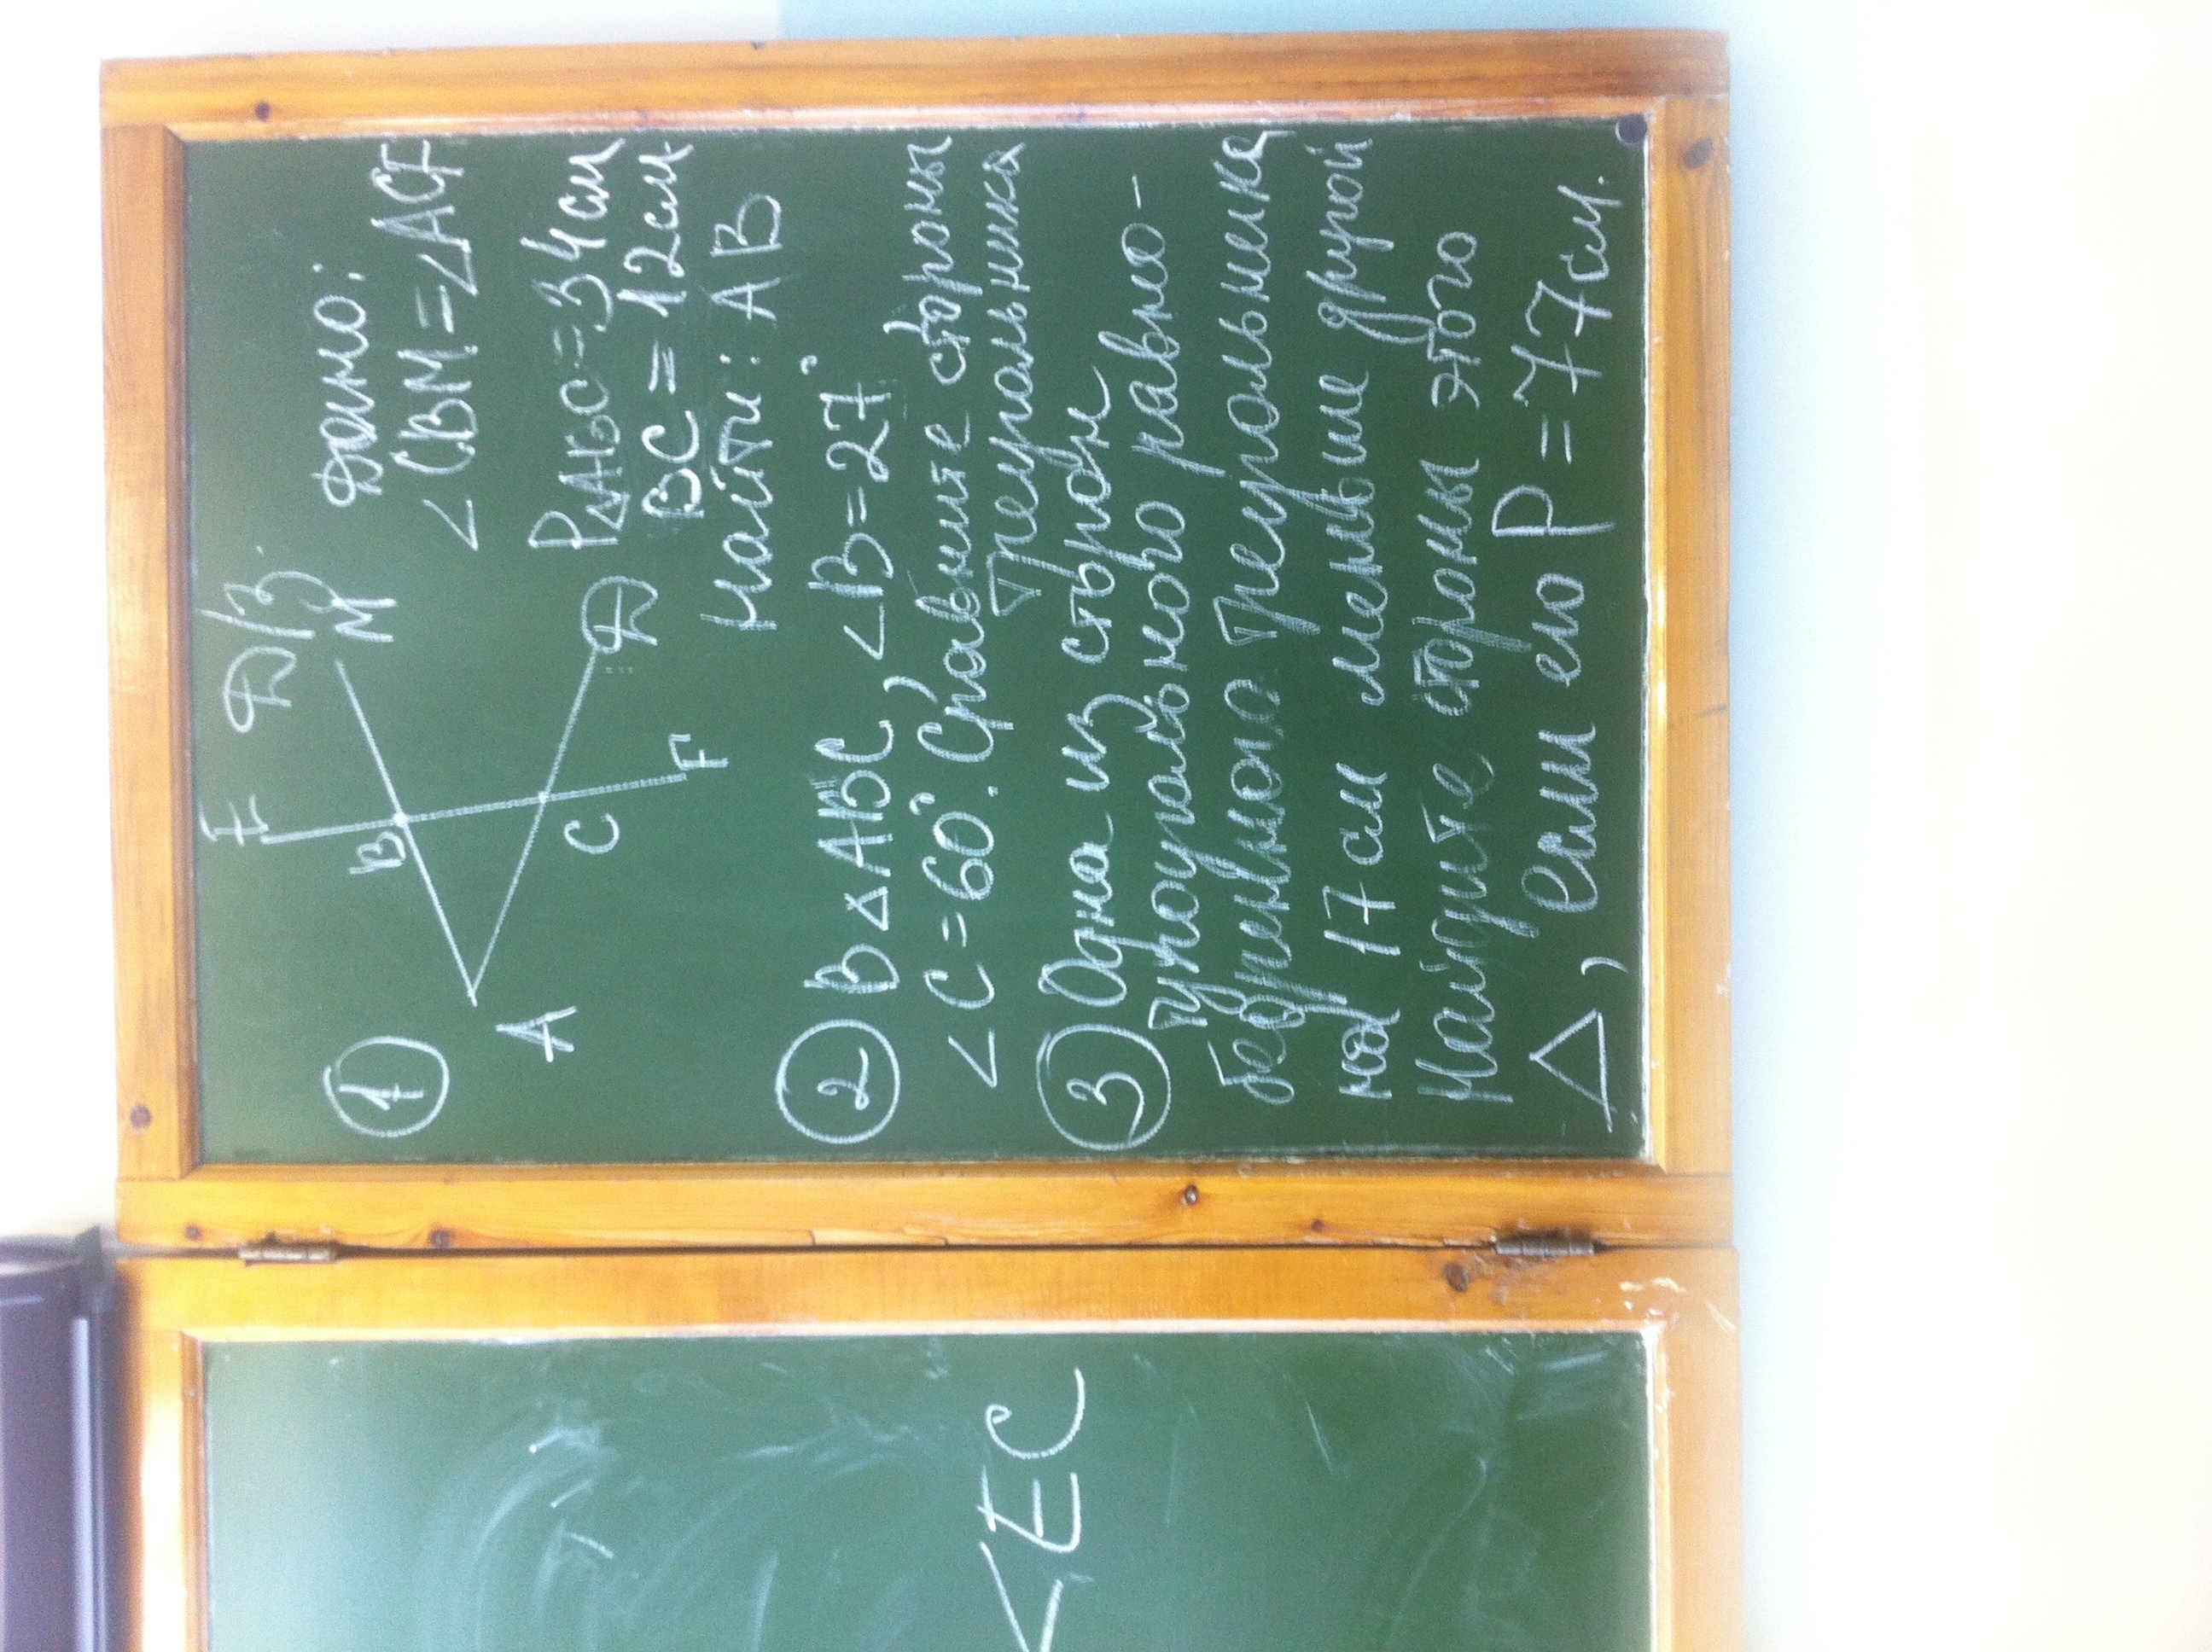 Д/З.
E
M
Дано:
B
∠CBM = ∠ACF
①
P△ABC = 34 см
A
C
D
BC = 12 см
F
Найти: AB
② В △ABC, ∠B = 27°
∠C = 60°. Сравните стороны
треугольника
③ Одна из сторон
тупоугольного равно-
бедренного треугольника
на 17 см меньше другой
Найдите стороны этого
△, если его P = 77 см.
< EC